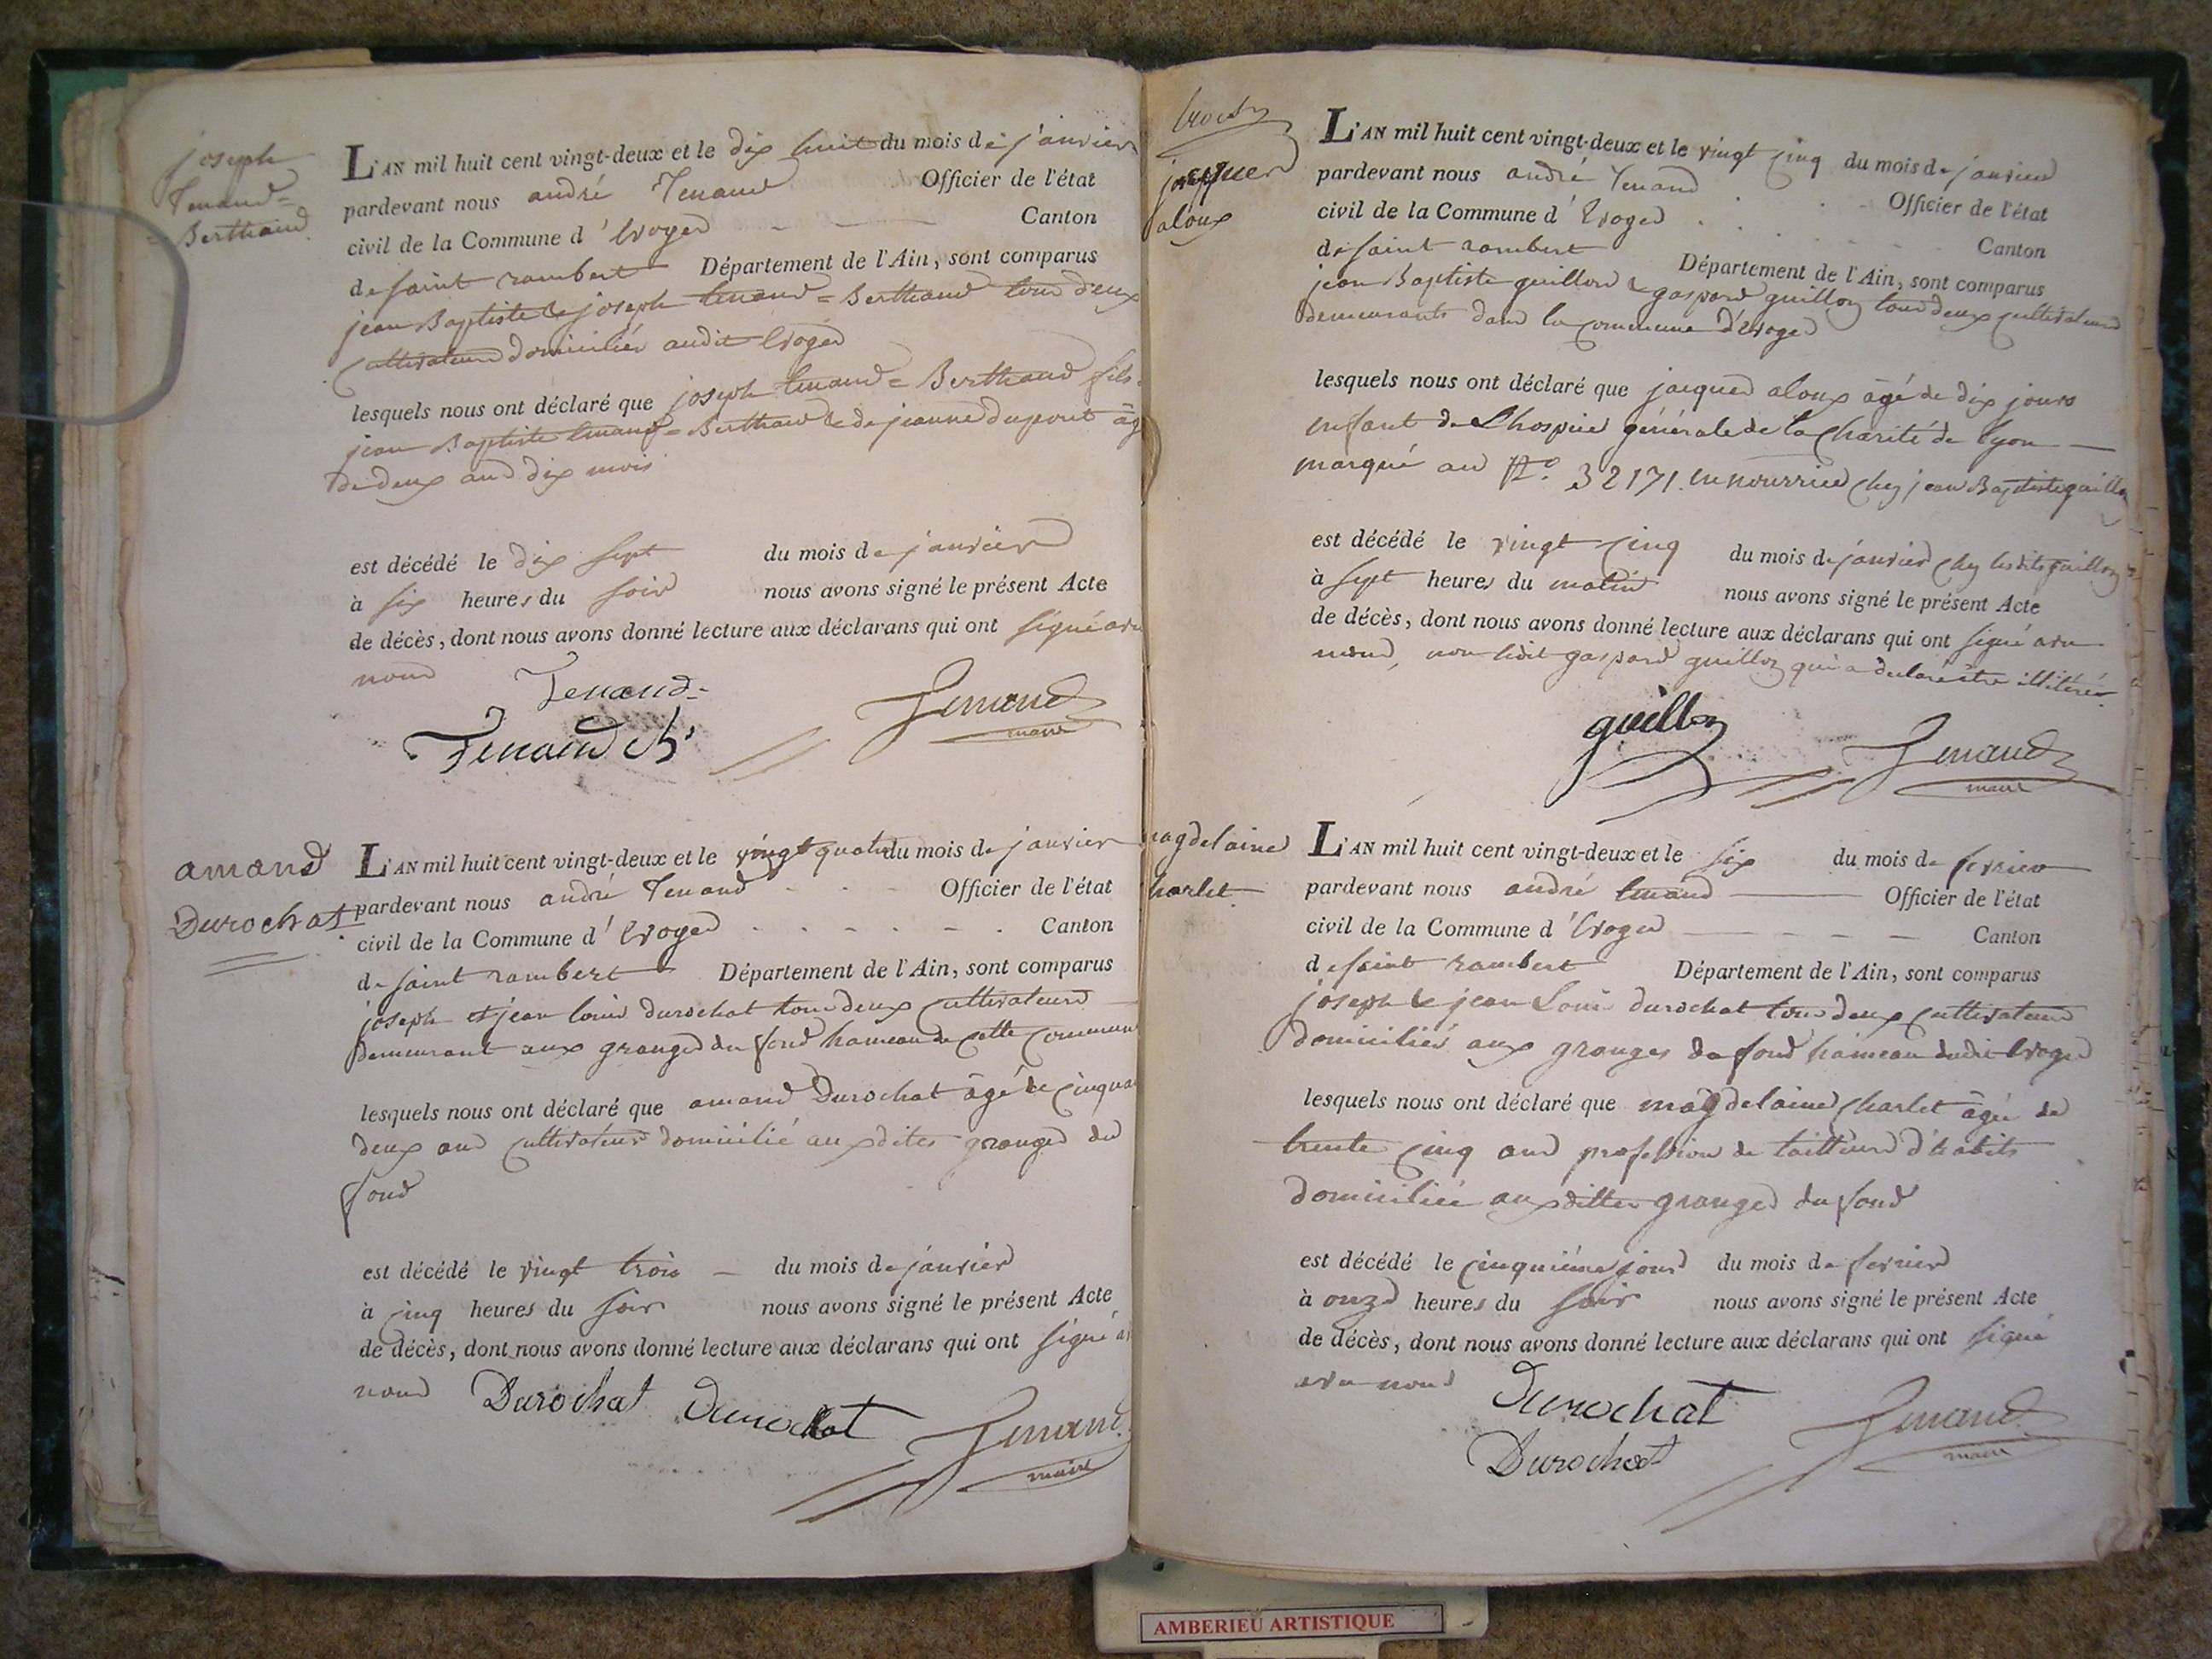 joseph
Tenand=
=Berthaud
L'AN mil huit cent vingt-deux et le dix huit du mois de janvier
pardevant nous andré Tenand Officier de l'état
civil de la Commune d'Evoges - - - Canton
de saint rambert Département de l'Ain, sont comparus
jean Baptiste & joseph tenand=Berthaud tous deux
Cultivateurs domiciliés audit Evoges
lesquels nous ont déclaré que joseph tenand=Berthaud fils
jean Baptiste tenand=Berthaud & de jeanne dupont âg
de deux ans dix mois
est décédé le dix sept du mois de janvier
à six heures du soir nous avons signé le présent Acte
de décès, dont nous avons donné lecture aux déclarans qui ont signé avec
nous
Tenand
Tenand
Tenand
maire
amand
Durochat
L'AN mil huit cent vingt-deux et le vingt quatre du mois de janvier
pardevant nous andré Tenand - - - Officier de l'état
civil de la Commune d'Evoges - - - - - Canton
de saint rambert Département de l'Ain, sont comparus
joseph et jean louis durochat tous deux cultivateurs
demeurant aux granges du fond hameau de cette Commun
lesquels nous ont déclaré que amand Durochat âgé de cinqua
deux ans cultivateur domicilié auxdites granges du
fond
est décédé le vingt trois - du mois de janvier
à cinq heures du soir nous avons signé le présent Acte
de décès, dont nous avons donné lecture aux déclarans qui ont signé a
nous Durochat Durochat Tenand
maire
jacques
aloux
L'AN mil huit cent vingt-deux et le vingt cinq du mois de janvier
pardevant nous andré Tenand Officier de l'état
civil de la Commune d'Evoges - - - - - Canton
de saint rambert Département de l'Ain, sont comparus
jean Baptiste guillon & gaspard guillon tous deux cultivateurs
demeurants dans la commune d'Evoges
lesquels nous ont déclaré que jacques aloux âgé de dix jours
enfant de Lhospice générale de la Charité de lyon —
marqué au N.º 32171. en nourrice chez jean Baptiste guillon
est décédé le vingt cinq du mois de janvier chez lesdits guillon
à sept heures du matin nous avons signé le présent Acte
de décès, dont nous avons donné lecture aux déclarans qui ont signé avec
nous, non ledit gaspard guillon qui a déclaré être illitéré
guillon
Tenand
maire
magdelaine
harlet
L'AN mil huit cent vingt-deux et le six du mois de fevrier
pardevant nous andré tenand — Officier de l'état
civil de la Commune d'Evoges — - - - Canton
de saint rambert Département de l'Ain, sont comparus
joseph & jean Louis durochat tous deux cultivateurs
domiciliés aux granges du fond hameau dudit Evoges
lesquels nous ont déclaré que magdelaine Charlet âgée de
trente cinq ans profession de tailleur d'habits
domiciliée auxdittes granges du fond
est décédé le cinquième jour du mois de fevrier
à onze heures du soir nous avons signé le présent Acte
de décès, dont nous avons donné lecture aux déclarans qui ont signé
avec nous Durochat
Durochat
Tenand
maire
AMBERIEU ARTISTIQUE